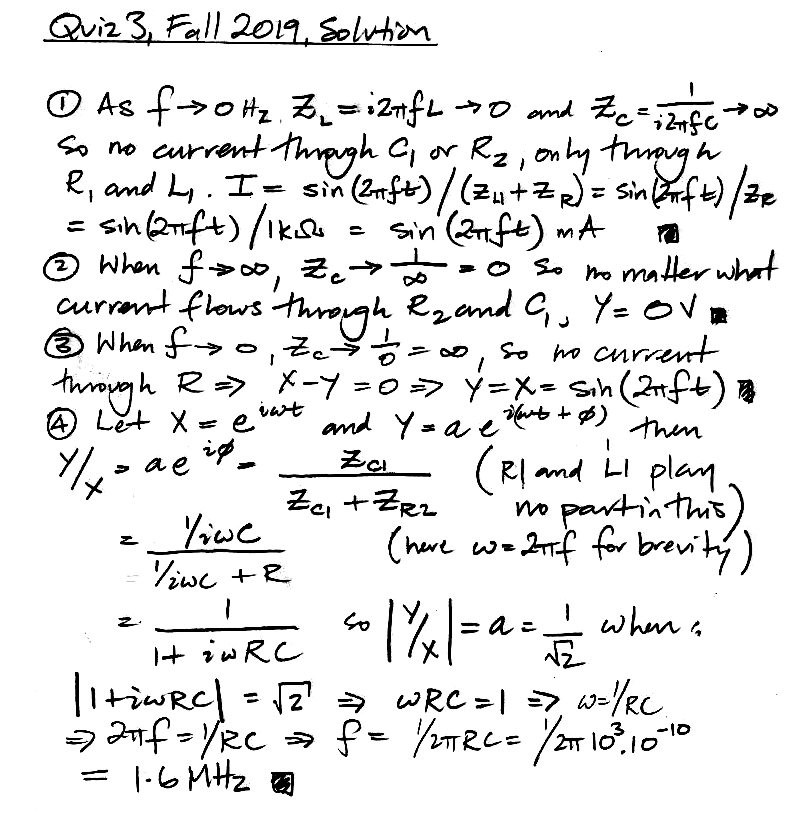 Quiz 3, Fall 2019, Solution
① As f→0 Hz, Z_L = i2πfL → 0 and Z_C = 1/i2πfC → ∞
So no current through C1 or R2, only through
R1 and L1. I = sin(2πft)/(Z_L1+Z_R) = sin(2πft)/Z_R
= sin(2πft)/1kΩ = sin(2πft) mA
② When f→∞, Z_C → 1/∞ = 0 so no matter what
current flows through R2 and C1, Y = 0V
③ When f→0, Z_C → 1/0 = ∞, so no current
through R ⇒ X-Y = 0 ⇒ Y=X= sin(2πft)
④ Let X = e^{iωt} and Y = a e^{i(ωt+φ)}, then
Y/X = a e^{iφ} = Z_C1 / (Z_C1 + Z_R2) (R1 and L1 play
no part in this)
= (1/iωC) / (1/iωC + R) (here ω=2πf for brevity)
= 1 / (1+iωRC) so |Y/X| = a = 1/√2 when:
|1+iωRC| = √2 ⇒ ωRC=1 ⇒ ω=1/RC
⇒ 2πf = 1/RC ⇒ f = 1/2πRC = 1/2π10^3.10^-10
= 1.6 MHz